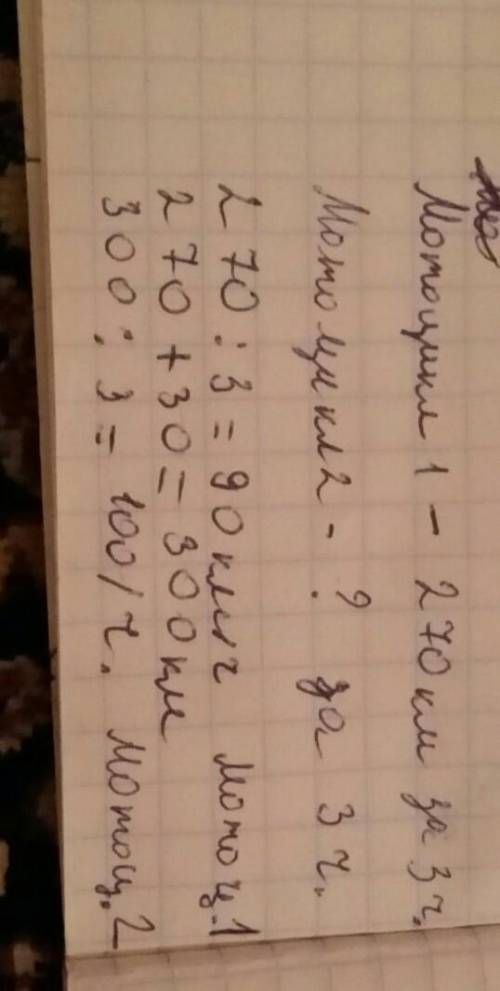 Мотоцикл 1 - 270 км за 3 ч.
Мотоцикл 2 - ? за 3 ч.
270 : 3 = 90 км/ч мотоц. 1
270 + 30 = 300 км
300 : 3 = 100/ч. мотоц. 2